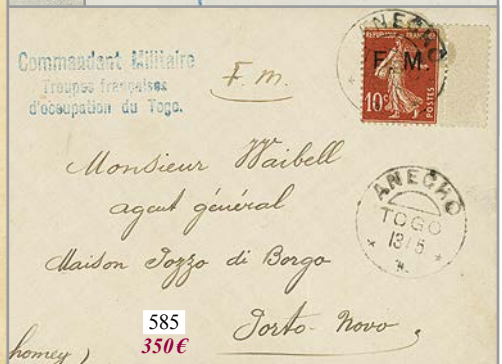 Commandant Militaire
Troupes françaises
d'occupation du Togo.
F. M.
ANECHO
REPUBLIQUE FRANÇAISE
F. M.
10c
POSTES
Monsieur Waibell
agent général
Maison Pozzo di Borgo
Porto-Novo
ANECHO
TOGO
13/5
homey)
585
350€